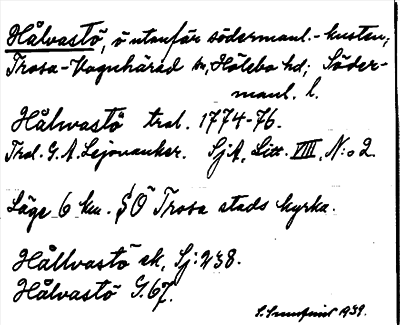 Hålvastö, ö utanför södermanl.-kusten;
Trosa-Vagnhärad sn, Hölebo hd; Söder-
manl. l.
Hålwastö trol. 1774-76.
Trol. G. A. Lejonanker. SjA, Litt. VIII, N:o 2.
Läge 6 km. SÖ Trosa stads kyrka.
Hållvastö sk, Sj: 238.
Hålvastö G. 67.
1939.